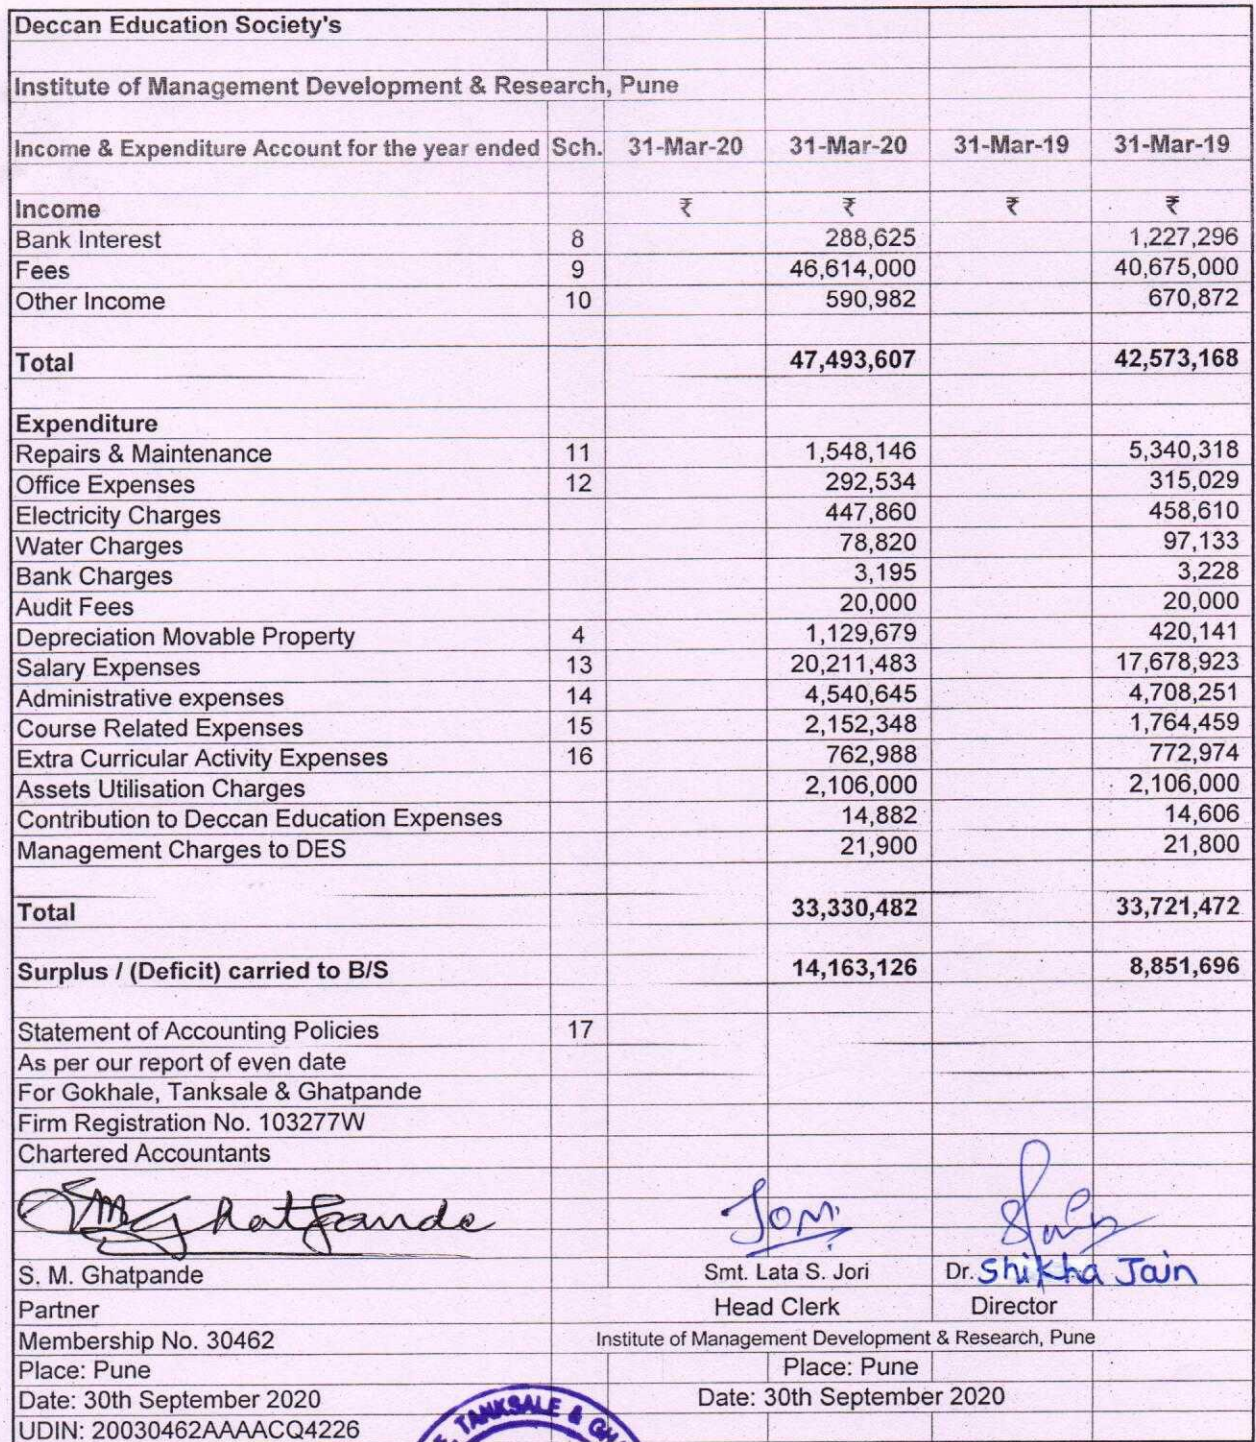 Deccan Education Society's
Institute of Management Development & Research, Pune
Income & Expenditure Account for the year ended Sch. 31-Mar-20 31-Mar-20 31-Mar-19 31-Mar-19
Income ₹ ₹ ₹ ₹
Bank Interest 8 288,625 1,227,296
Fees 9 46,614,000 40,675,000
Other Income 10 590,982 670,872
Total 47,493,607 42,573,168
Expenditure
Repairs & Maintenance 11 1,548,146 5,340,318
Office Expenses 12 292,534 315,029
Electricity Charges 447,860 458,610
Water Charges 78,820 97,133
Bank Charges 3,195 3,228
Audit Fees 20,000 20,000
Depreciation Movable Property 4 1,129,679 420,141
Salary Expenses 13 20,211,483 17,678,923
Administrative expenses 14 4,540,645 4,708,251
Course Related Expenses 15 2,152,348 1,764,459
Extra Curricular Activity Expenses 16 762,988 772,974
Assets Utilisation Charges 2,106,000 2,106,000
Contribution to Deccan Education Expenses 14,882 14,606
Management Charges to DES 21,900 21,800
Total 33,330,482 33,721,472
Surplus / (Deficit) carried to B/S 14,163,126 8,851,696
Statement of Accounting Policies 17
As per our report of even date
For Gokhale, Tanksale & Ghatpande
Firm Registration No. 103277W
Chartered Accountants
SMGhatpande Jori
S. M. Ghatpande Smt. Lata S. Jori Dr. Shikha Jain
Partner Head Clerk Director
Membership No. 30462 Institute of Management Development & Research, Pune
Place: Pune Place: Pune
Date: 30th September 2020 Date: 30th September 2020
UDIN: 20030462AAAACQ4226
TANKSALE &